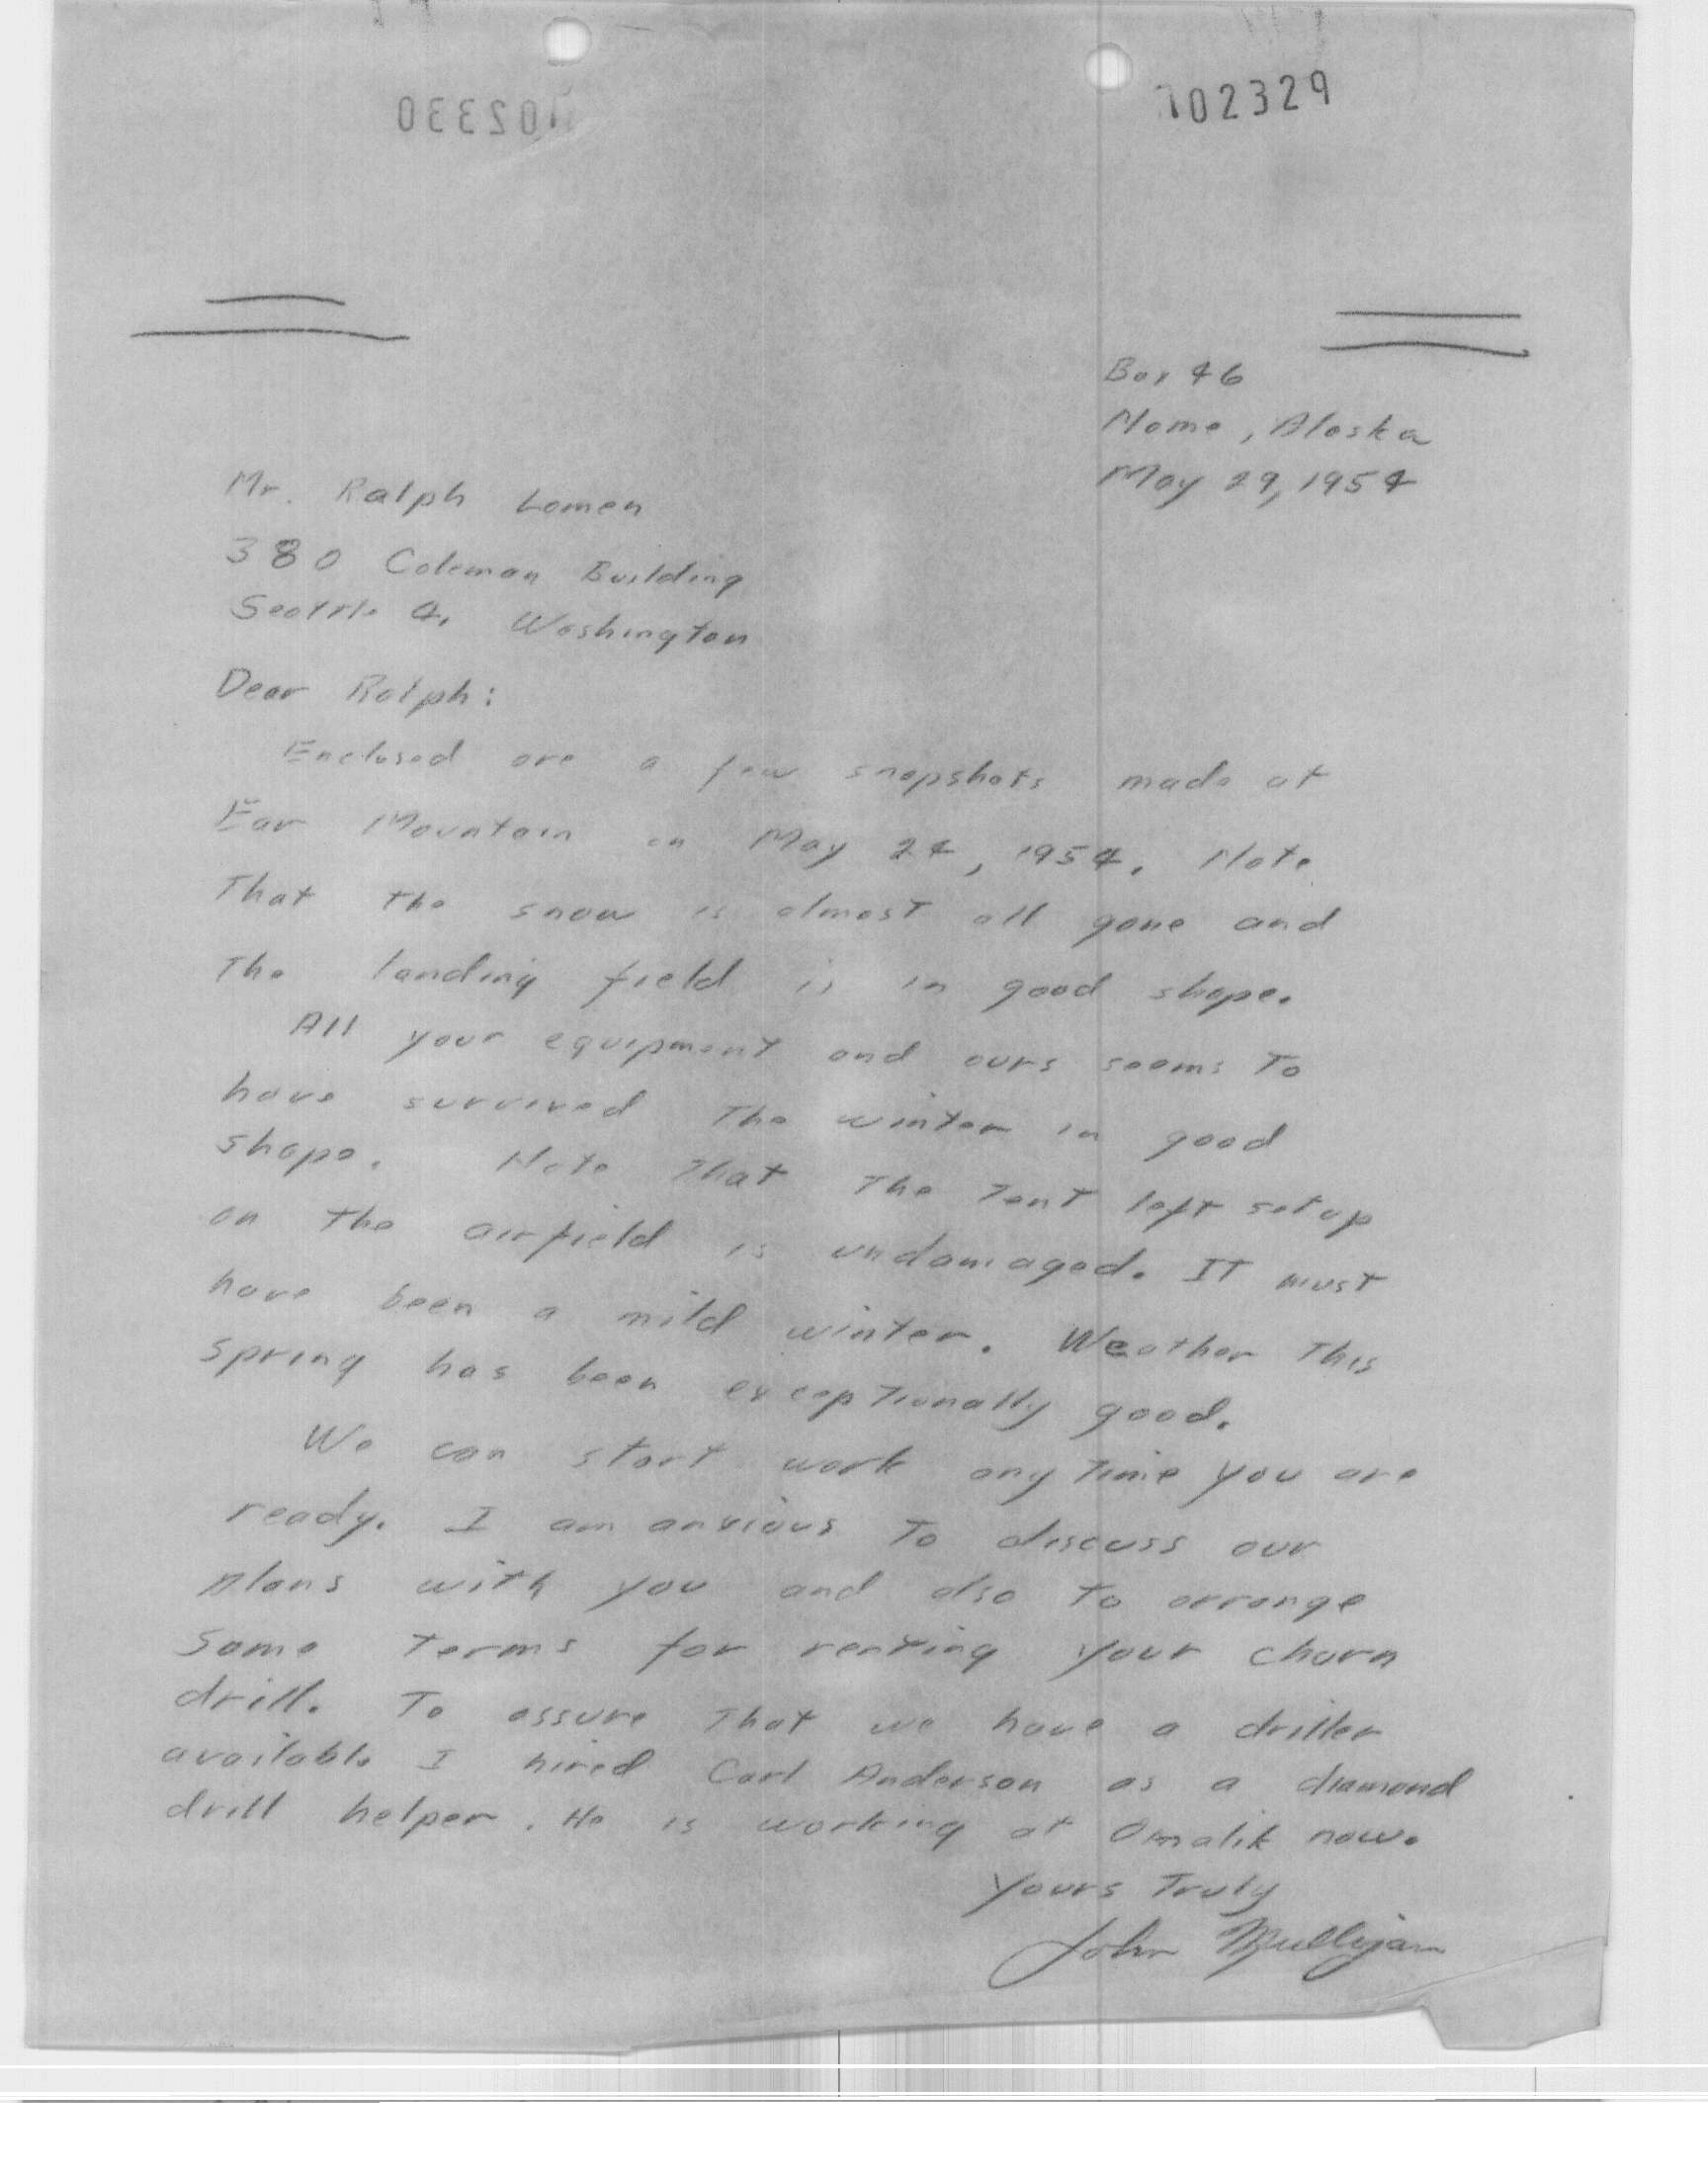 102330
102329
Box 46
Nome, Alaska
May 29, 1954
Mr. Ralph Lomen
380 Coleman Building
Seattle 4, Washington
Dear Ralph:
Enclosed are a few snapshots made at
Ear Mountain on May 24, 1954. Note
That the snow is almost all gone and
The landing field is in good shape.
All your equipment and ours seems To
have survived The winter in good
shape. Note That The Tent left setup
on the airfield is undamaged. IT must
have been a mild winter. Weather This
spring has been exceptionally good.
We can start work any Time you are
ready. I am anxious To discuss our
plans with you and also To arrange
some terms for renting your churn
drill. To assure That we have a driller
available I hired Carl Anderson as a diamond
drill helper. He is working at Omalik now.
Yours Truly
John Mulligan